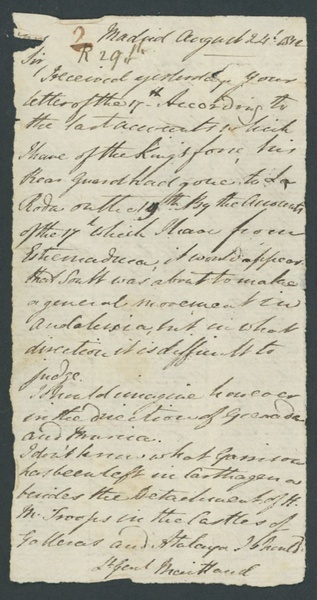 2 Madrid August 24th 1812
R 29th
Sir
I received yesterday your
letter of the 17th. According to
the last accounts which
I have of the King's force, his
Rear Guard had gone to La
Roda on the 19th. By the accounts
of the 17th which I have from
Estremadura, it would appear
that Soult was about to make
a general movement in
Andalusia, but in what
direction it is difficult to
judge.
I should imagine however
in the direction of Grenada
and Murcia.
I don't know what Garrison
has been left in Carthagena
besides the Detachment of H.
M. Troops in the Castles of
Galleras and Atalaya I should
Lt Genl Maitland